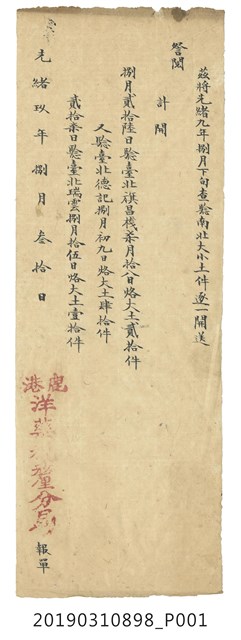 茲將光緒九年捌月下旬查驗南北大小土件逐一開送
詧閱
計開
捌月貳拾陸日驗臺北旗昌棧柒月拾八日烙大土貳拾件
又驗臺北德記捌月初九日烙大土肆拾件
貳拾柒日驗臺北瑞雲捌月拾伍日烙大土壹拾件
光緒玖年捌月叁拾日
鹿港
洋藥 釐分局
報單
20190310898_P001